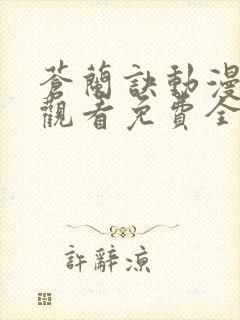 蒼蘭訣動漫
觀看免費全
許辭涼